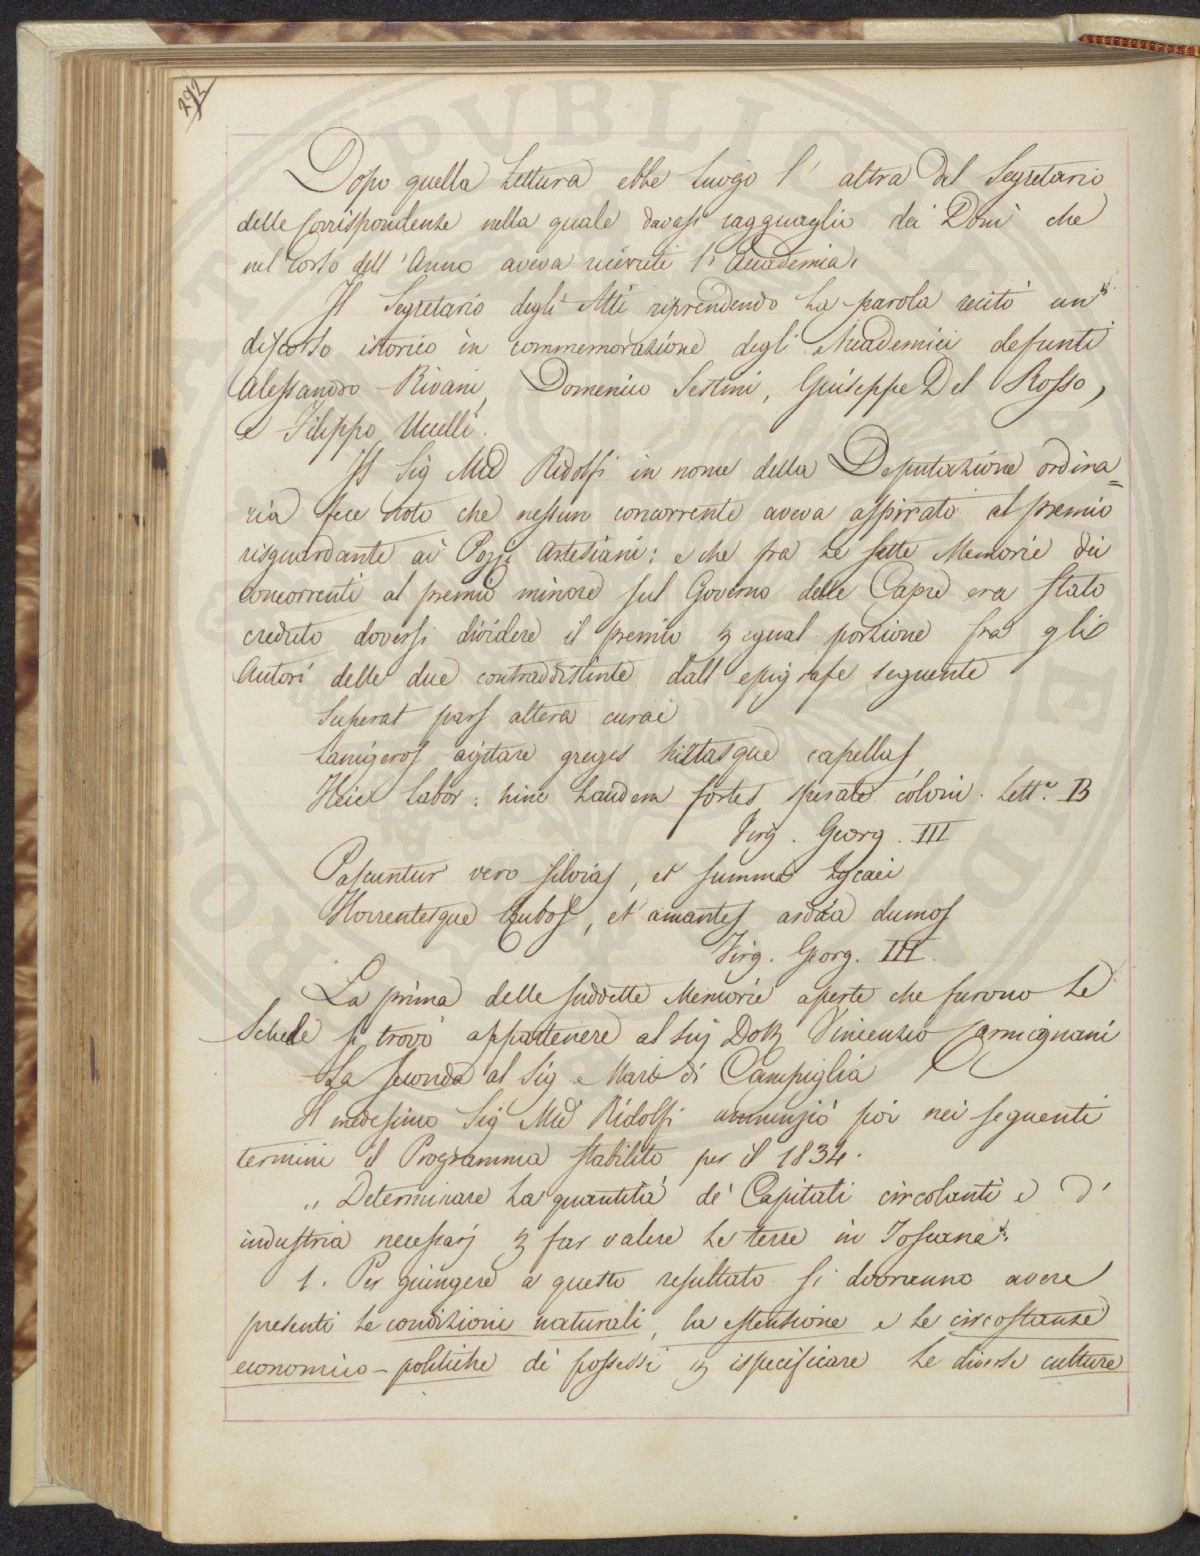 292
Dopo quella Lettura ebbe luogo l' altra del Segretario
delle Corrispondenze nella quale davasi ragguaglio dei Doni che
nel Corso dell' Anno aveva ricevuti l' Accademia.
Il Segretario degli Atti riprendendo La parola recitò un
discorso istorico in commemorazione degli Accademici defunti
Alessandro Rivani, Domenico Sestini, Giuseppe Del Rosso,
e Filippo Uccelli.
Il Sig Ridolfi in nome della Deputazione ordina=
ria fece noto che nessun concorrente aveva aspirato al premio
risguardante ai Pozzi Artesiani: e che fra Le sette Memorie dei
concorrenti al premio minore sul Governo delle Capre era stato
creduto doversi dividere il premio egual porzione fra gli
Autori delle due contraddistinte dall epigrafe seguente
Superat pars altera curae
Lanigeros agitare greges hirtasque capellas
Heic labor: hinc Laudem fortes sperate coloni. Lett.a B
Virg. Georg. III
Pascuntur vero silvias, et summa Lycaei
Horrentesque Rubos, et amantes ardua dumos
Virg. Georg. III.
La prima delle suddette Memorie aperte che furono Le
Schede si trovò appartenere al Sig Dott Vincenzio Carmignani
La seconda al Sig. Mario di Campiglia
Il medesimo Sig Ridolfi annunziò poi nei seguenti
termini il Programma stabilito per il 1834.
" Determinare La quantità de' Capitali circolanti e d'
industria necessarj far valere Le terre in Toscana.
1. Per giungere a questo resultato si dovranno avere
presenti Le condizioni naturali, La estensione e Le circostanze
economico-politiche de' possessi ispecificare Le diverse culture